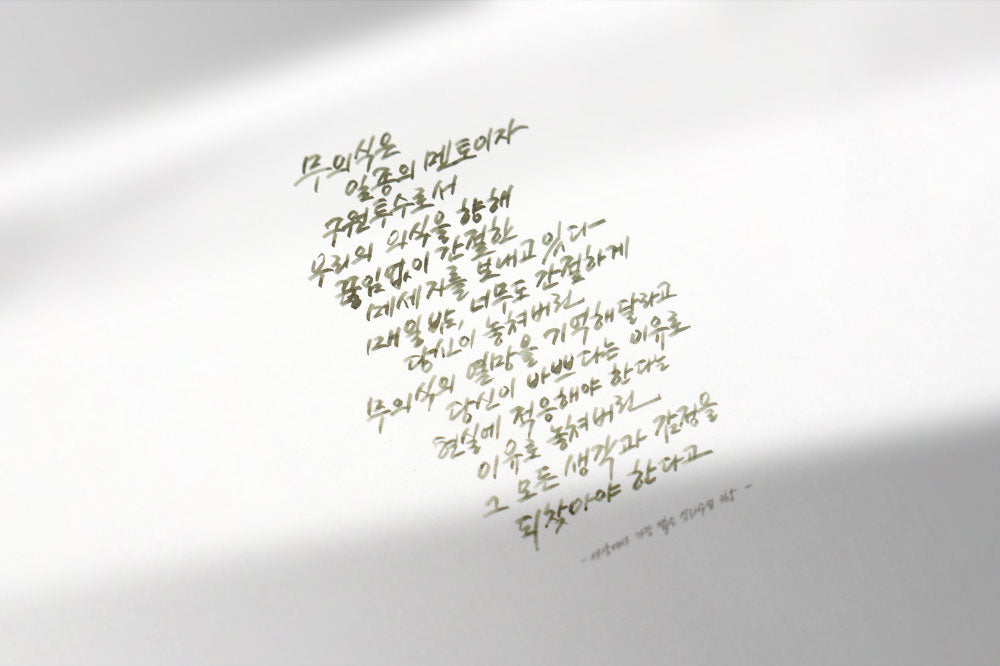 무의식은
일종의 멘토이자
구원투수로서
우리의 의식을 향해
끊임없이 간절한
메세지를 보내고 있다
매일 밤, 너무도 간절하게
당신이 놓쳐버린
무의식의 열망을 기억해달라고
당신이 바쁘다는 이유로
현실에 적응해야 한다는
이유로 놓쳐버린
그 모든 생각과 감정을
되찾아야 한다고
- 세상에서 가장 짧은 심리수업 -